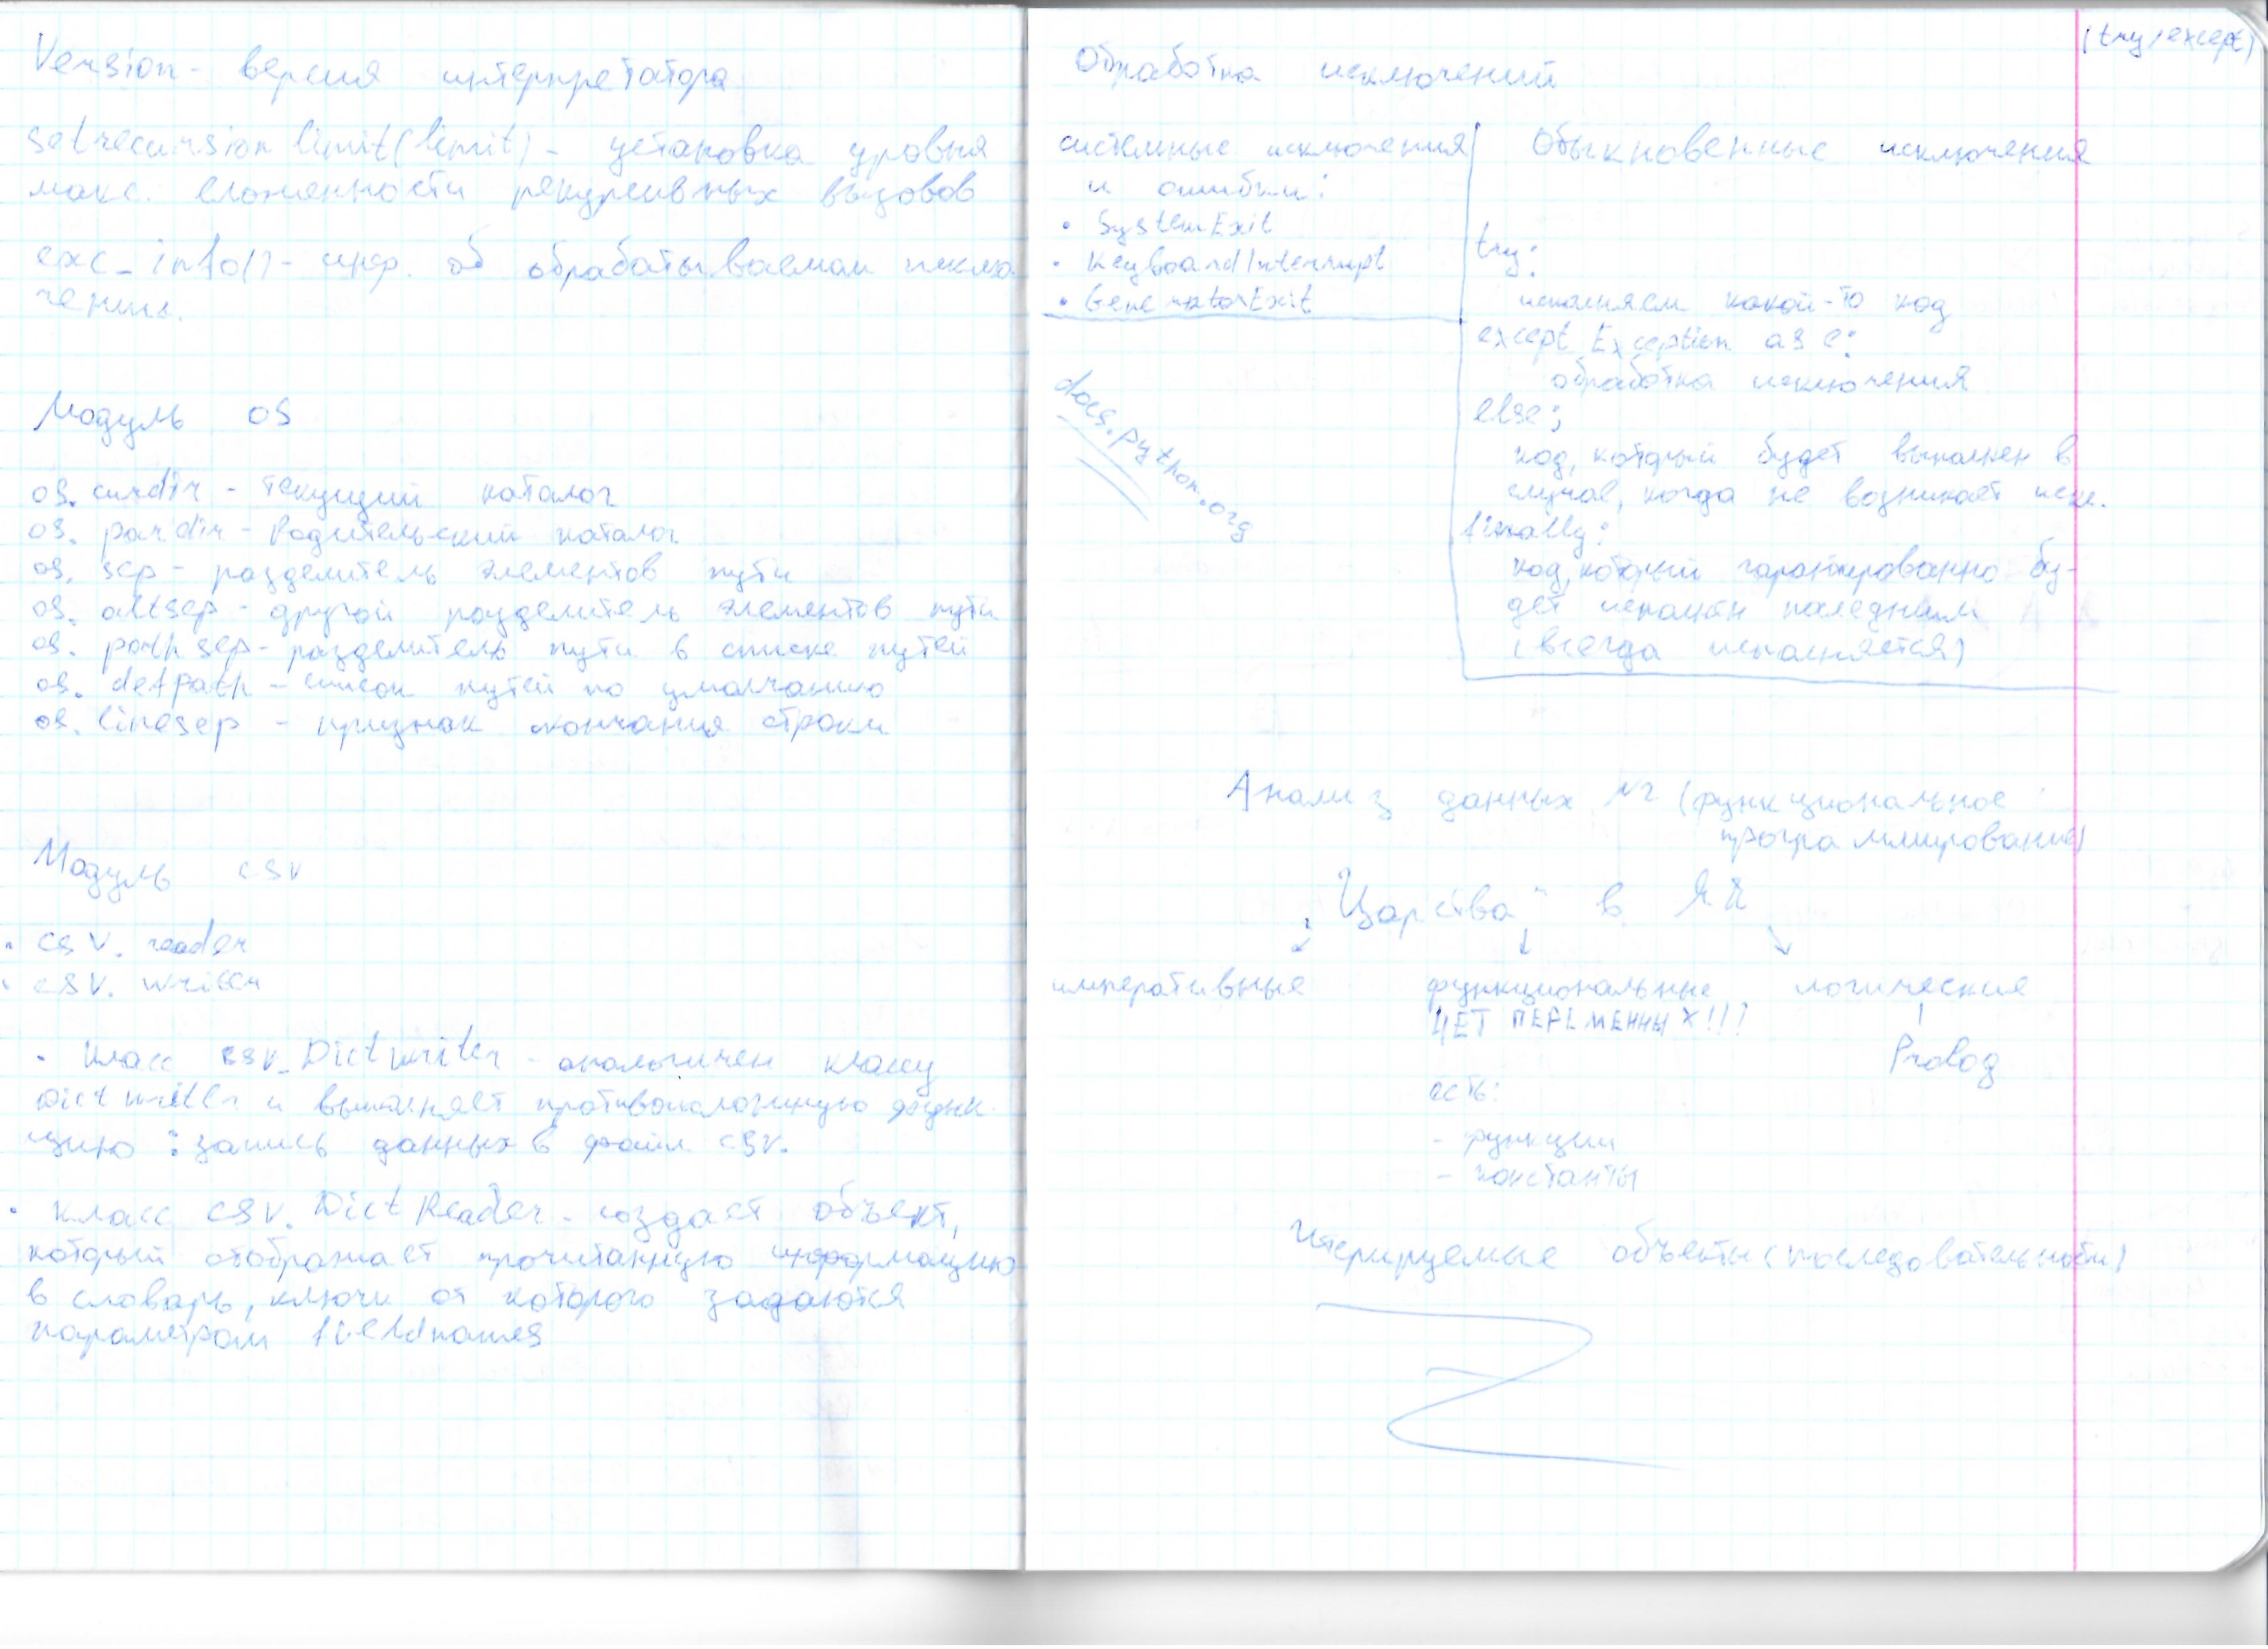 Version - версия интерпретатора
setrecursionlimit(limit) - установка уровня
макс. вложенности рекурсивных вызовов
exc_info() - инф. об обрабатываемом исклю
чении.
Модуль os
os. curdir - текущий каталог
os. pardir - Родительский каталог
os. sep - разделитель элементов пути
os. altsep - другой разделитель элементов пути
os. pathsep - разделитель пути в списке путей
os. defpath - список путей по умолчанию
os. linesep - признак окончания строки
Модуль csv
• csv. reader
• csv. writer
• Класс csv. DictWriter - аналогичен классу
DictWriter и выполняет противоположную функ-
цию : запись данных в файл csv.
• класс csv. DictReader - создает объект,
который отображает прочитанную информацию
в словарь, ключи от которого задаются
параметром fieldnames
(try, except)
Обработка исключений
системные исключения
и ошибки:
• SystemExit
• KeyboardInterrupt
• GeneratorExit
docs.python.org
Обыкновенные исключения
try:
исполняем какой-то код
except Exception as e:
обработка исключения
else:
код, который будет выполнен в
случае, когда не возникает искл.
finally:
код, который гарантированно бу-
дет исполнен последним
(всегда исполняется)
Анализ данных №2 (функциональное
программирование)
„Царства" в ЯП
императивные функциональные логические
НЕТ ПЕРЕМЕННЫХ!!!
Prolog
есть:
- функции
- константы
Итерируемые объекты (последовательности)